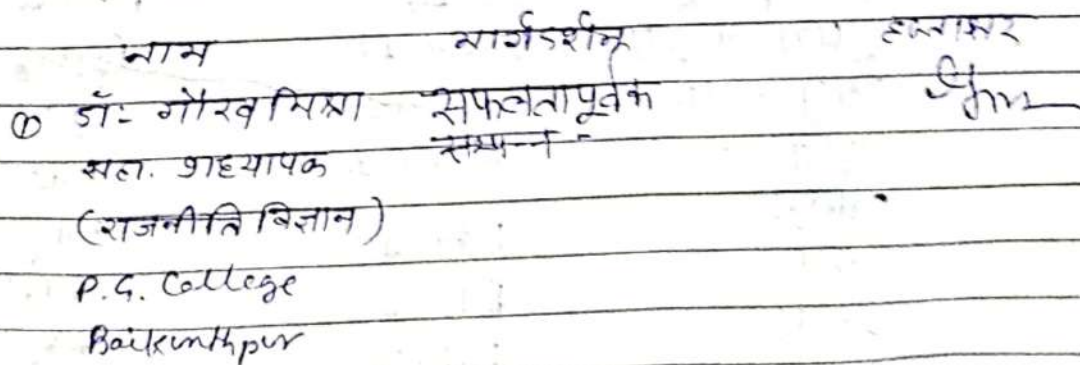 नाम मार्गदर्शन हस्ताक्षर
① डॉ- गौरव मिश्रा सफलतापूर्वक
सहा. प्राध्यापक सम्पन्न -
(राजनीति विज्ञान)
P.G. College
Baikunthpur